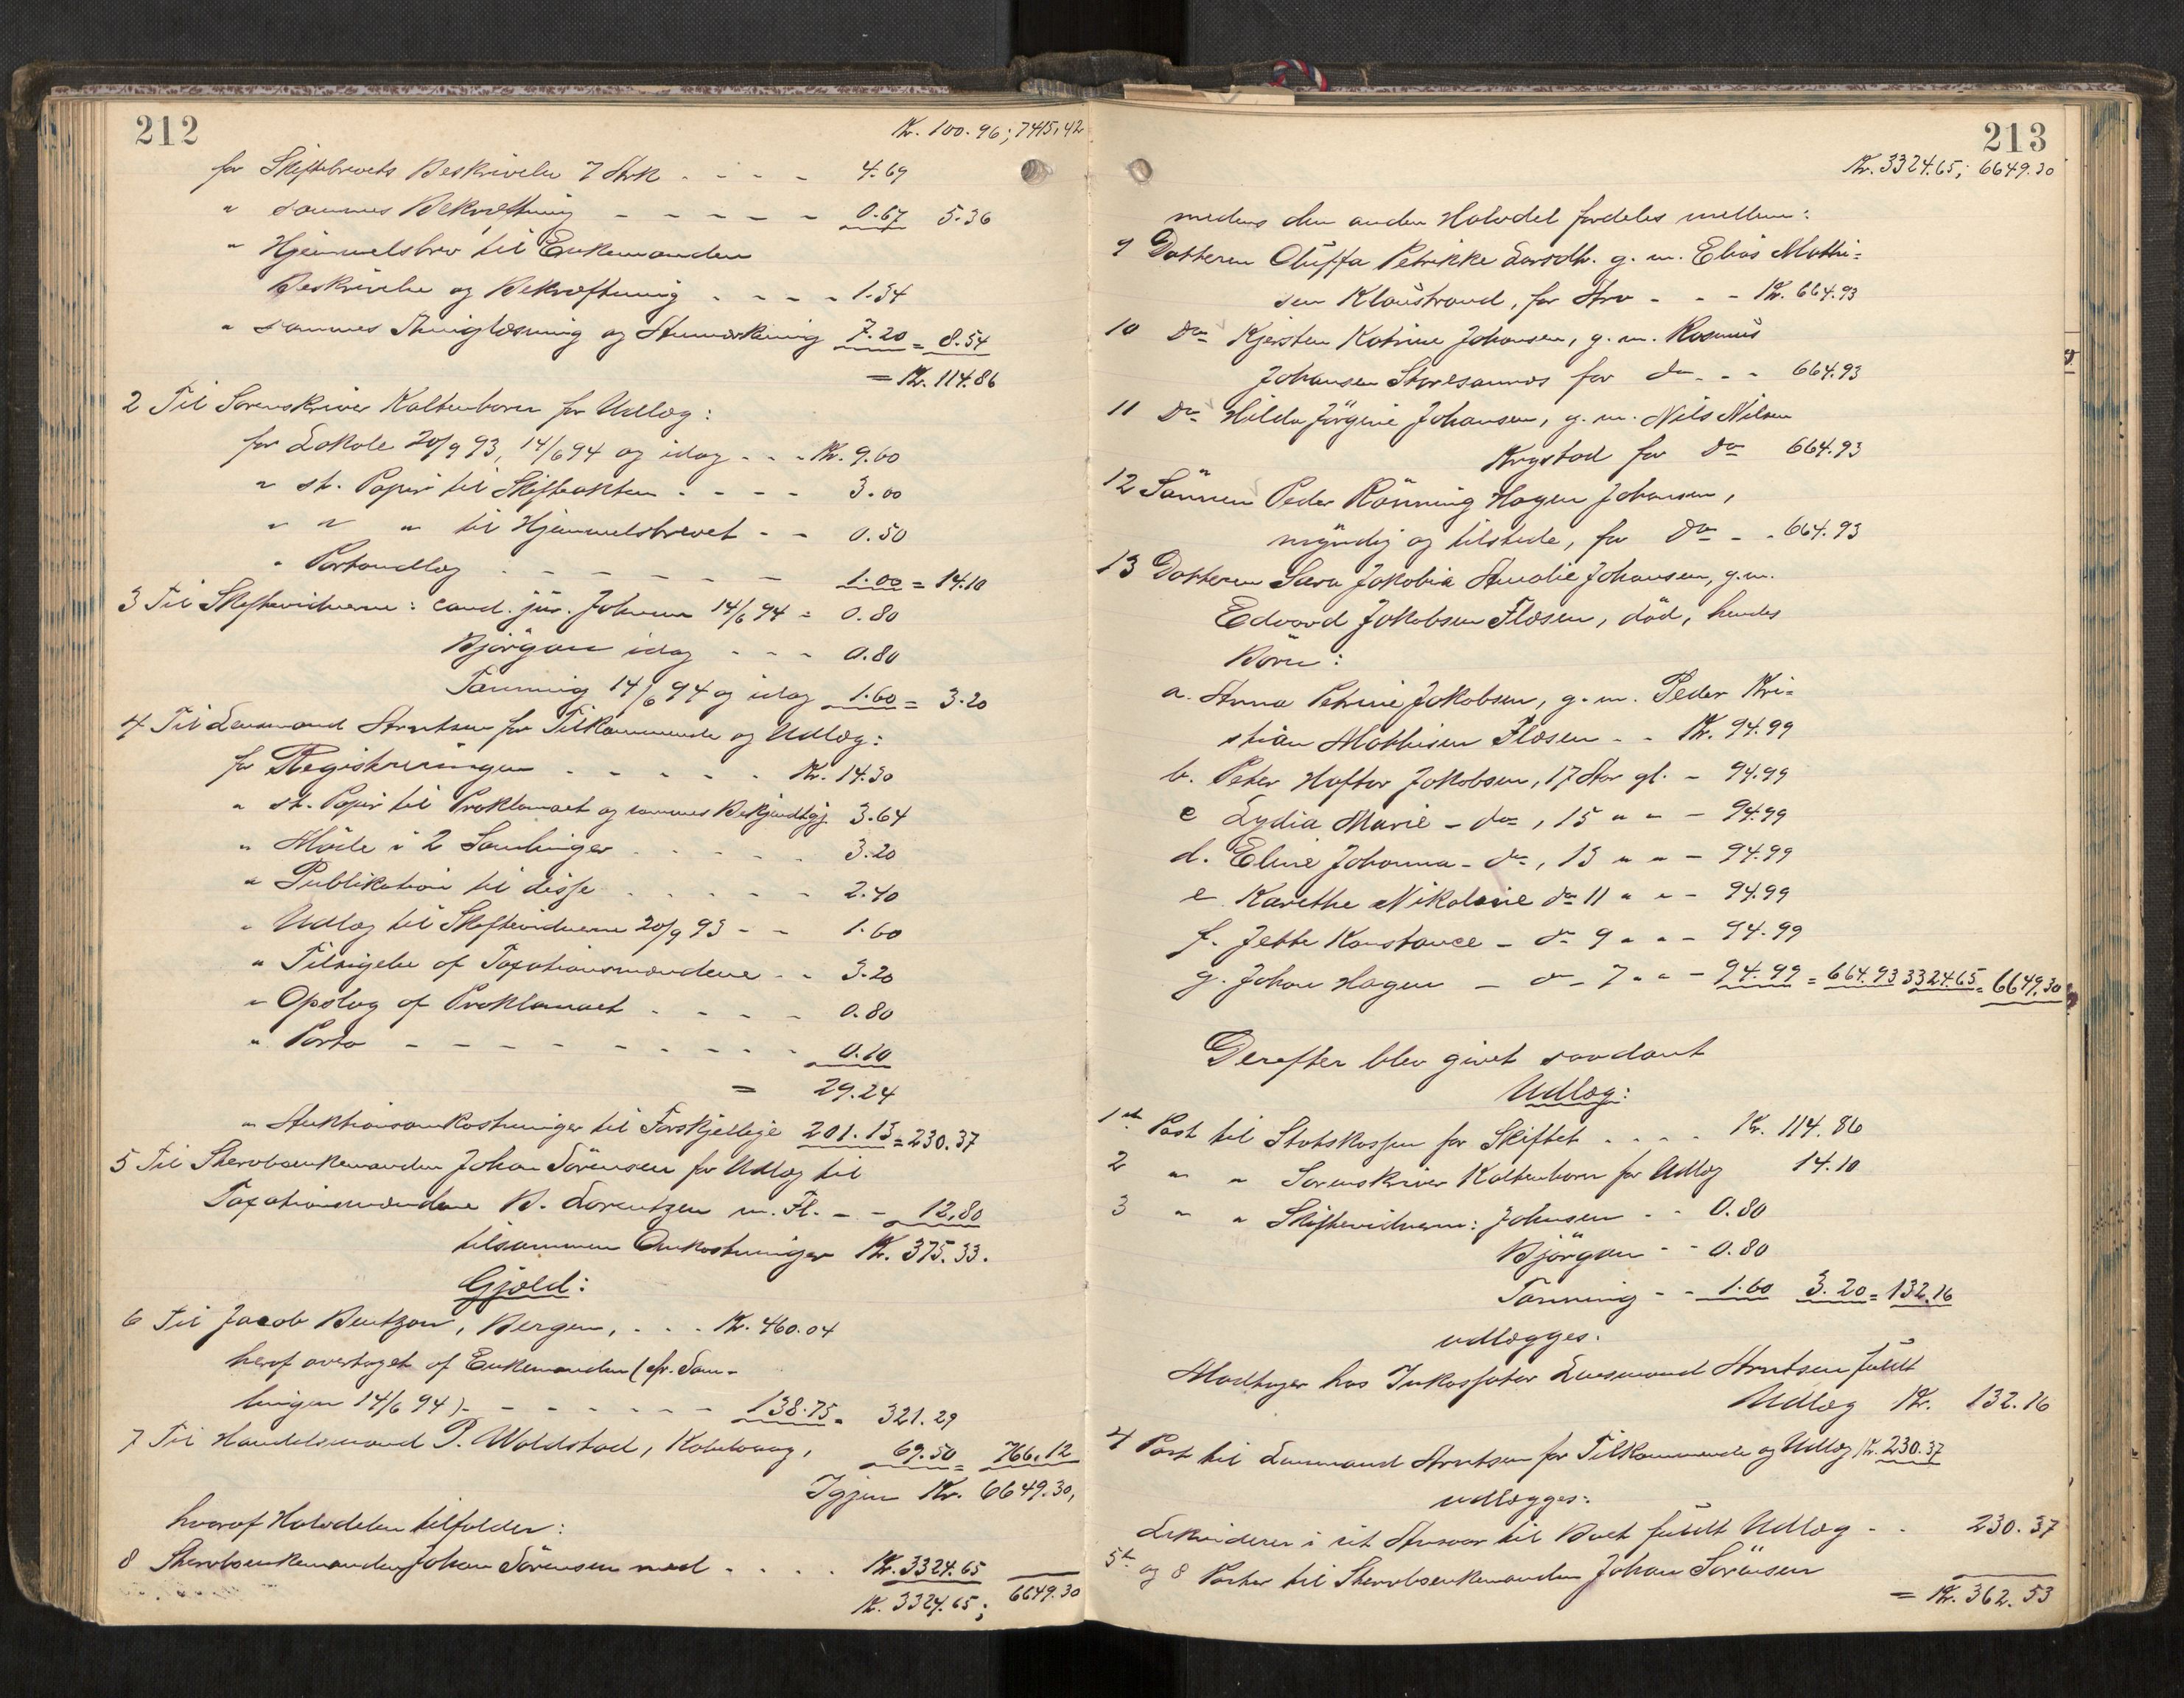 212
Kr. 100.96; 7415,42
for Skiftebrevets Beskrivelse 7 Ark - - - - 4.69
" sammes Bekræftning - - - - - 0.67 5.36
" Hjemmelsbrev til Enkemanden
Beskrivelse og Bekræftning - - - - 1.34
" sammes Thinglæsning og Anmærkning 7.20 = 8.54
= Kr. 114.86
2 Til Sorenskriver Kaltenborn for Udlæg:
for Lokale 20/9 93, 14/6 94 og idag - - - Kr. 9.60
" st. Papir til Skifteakten - - - - 3.00
" " " til Hjemmelsbrevet - - 0.50
" Portoudlæg - - - - - - 1.00 = 14.10
3 Til Skiftevidnerne: cand. jur. Johnsen 14/6 94 = 0.80
Bjørgan idag - - - 0.80
Tanning 14/6 94 og idag 1.60 = 3.20
4 Til Lensmand Arntsen for Tilkommende og Udlæg:
for Registreringen - - - - - Kr. 14.30
" st. Papir til Proklamaet og sammes Bekjendtgj. 3.64
" Møde i 2 Samlinger - - - - - 3.20
" Publikation til disse - - - - - 2.40
" Udlæg til Skiftevidnerne 20/9 93 - - 1.60
" Tilsigelse af Taxationsmændene - - 3.20
" Opslag af Proklamaet - - - - 0.80
" Porto - - - - - - - - - 0.10
= 29.24
" Auktionsomkostninger til Forskjellige 201.13 = 230.37
5 Til Stervbsenkemanden Johan Sørensen for Udlæg til
Taxationsmændene B. Lorentzen m. Fl. - - 12,80
tilsammen Omkostninger Kr. 375.33.
Gjæld:
6 Til Jacob Bentzon, Bergen, - - - Kr. 460.04
heraf overtaget af Enkemanden (cfr. Sam-
lingen 14/6 94) - - - - - - - 138.75 = 321.29
7 Til Handelsmand P. Woldstad, Kobbevaag, 69.50 = 766.12
Igjen Kr. 6649.30,
hvoraf Halvdelen tilfalder:
8 Stervbsenkemanden Johan Sørensen med - - - - Kr. 3324.65
Kr. 3324.65; 6649.30
213
Kr. 3324.65; 6649.30
medens den anden Halvdel fordeles mellem:
9 Datteren Oluffa Petrikke Larsdtr. g. m. Elias Mathi=
sen Klaustrand, for Arv - - - Kr. 664.93
10 Do Kjersten Katrine Johansen, g. m. Rasmus
Johansen Storesannes for do - - 664.93
11 Do Hilda Jørgine Johansen, g. m. Nils Nilsen
Krystad for do 664.93
12 Sønnen Peder Rønning Hagen Johansen,
myndig og tilstede, for do - - 664.93
13 Datteren Sara Jakobia Amalie Johansen, g. m.
Edvard Jakobsen Flæsen, død, hendes
Børn:
a. Anna Petrine Jakobsen, g. m. Peder Kri=
stian Mathisen Flæsen - - Kr. 94.99
b. Peter Hoftor Jakobsen, 17 Aar gl. - 94.99
c Lydia Marie - do, 15 " " - 94.99
d. Eline Johanna - do, 13 " " - 94.99
e Karethe Nikolaie do 11 " " - 94.99
f. Jette Konstance - do 9 " " - 94.99
g. Johan Hagen - do - 7 " " - 94.99 = 664.93 3324.65 = 6649.30
Derefter blev givet saadant
Udlæg:
1ste Post til Statskassen for Skiftet - - - - Kr. 114.86
2 " " Sorenskriver Kaltenborn for Udlæg 14.10
3 " " Skiftevidnerne: Johnsen - - 0.80
Bjørgan - - 0.80
Tanning - - 1.60 3.20 = 132.16
udlægges.
Modtager hos Inkassator Lensmand Arntsen fuldt
Udlæg Kr. 132.16
4 Post til Lensmand Arntsen for Tilkommende og Udlæg Kr. 230.37
udlægges:
Likviderer i sit Ansvar til Boet fuldt Udlæg - - 230.37
5te og 8 Poster til Stervbsenkemanden Johan Sørensen
= Kr. 362.53